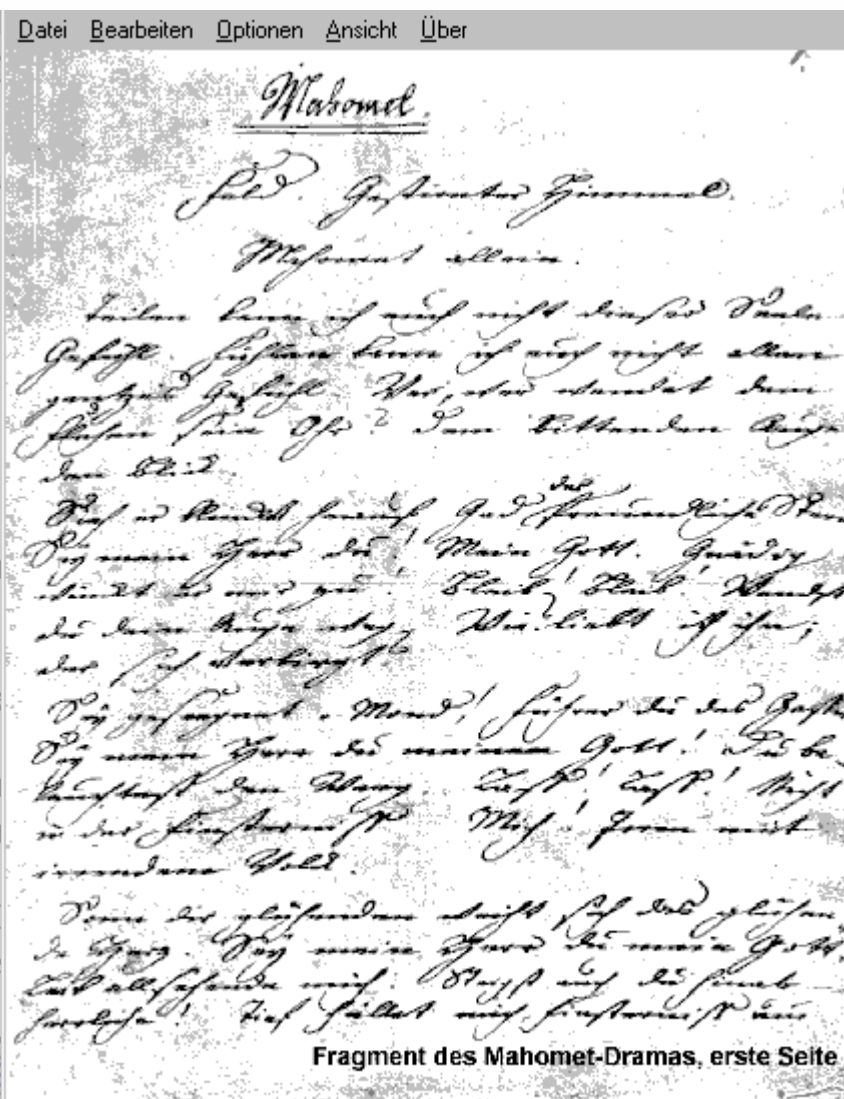 Datei Bearbeiten Optionen Ansicht Über
Mahomet.
Feld. Gestirnter Himmel.
Mahomet allein.
Teilen kann ich euch nicht dieser Seele
Gefühl. Fühlen kann ich euch nicht allen
ganzes Gefühl. Wer, wer wendet dem
Flehen sein Ohr? Dem bittenden Auge
den Blick
Sieh er blincket herauf Gad der freundliche Stern
Sey mein Herr du! Mein Gott. Gnädig
winckt er mir zu! Bleib! Bleib! Wendst
du dein Auge weg. Wie? liebt ich ihn,
der sich verbirgt?
Sey gesegnet o Mond! Führer du des Gestirns
Sey mein Herr du mein Gott! Du be-
leuchtest den Weeg. Lass! Lass! Nicht
in der Finsterniss Mich! Irren mit
irrendem Volck.
Sonn dir glühenden weiht sich das glühen
de Herz. Sey mein Herr du mein Gott.
Leit allsehende mich. Steigst auch du hinab
herrliche! Tief hüllet mich Finsterniss ein
Fragment des Mahomet-Dramas, erste Seite